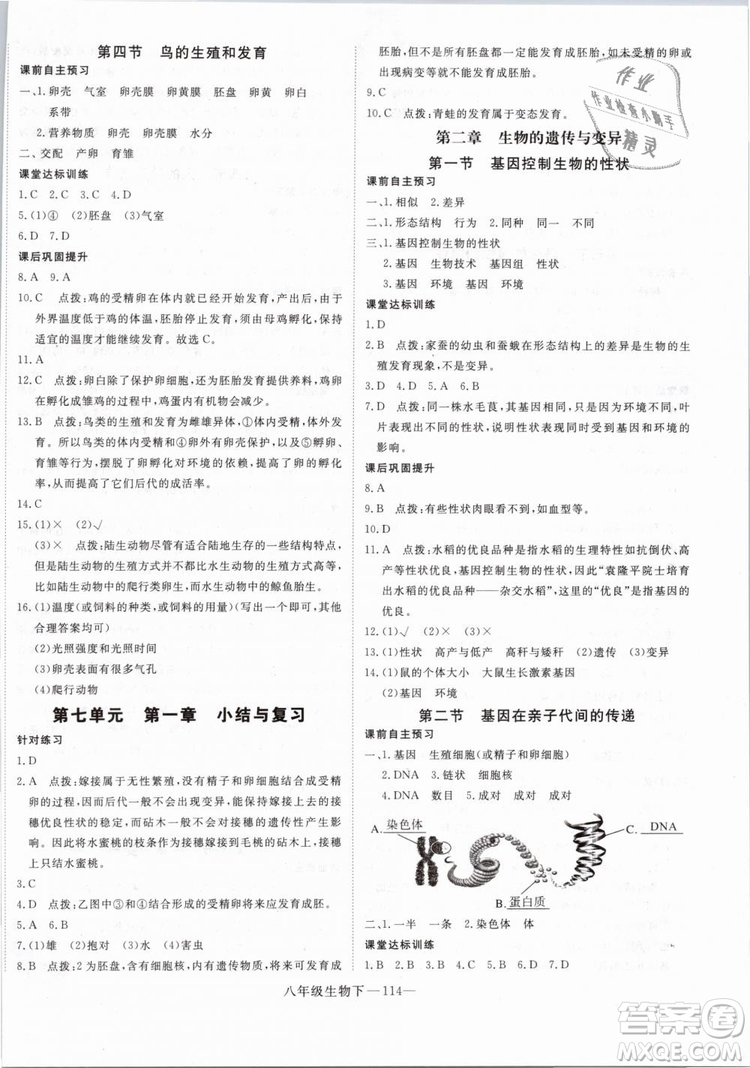 第四节　鸟的生殖和发育
课前自主预习
一、1. 卵壳　气室　卵壳膜　卵黄膜　胚盘　卵黄　卵白
系带
2. 营养物质　卵壳　卵壳膜　水分
二、交配　产卵　育雏
课堂达标训练
1. C　2. C　3. C　4. D
5. (1)④　(2)胚盘　(3)气室
6. D　7. D
课后巩固提升
8. A　9. A
10. C　点拨：鸡的受精卵在体内就已经开始发育，由于
外界温度低于鸡的体温，胚胎停止发育，须由母鸡孵化，保持
适宜的温度才能继续发育。故选 C。
11. A
12. C　点拨：卵白除了保护卵细胞，还为其提供营养，鸡卵
在孵化成雏鸡的过程中，鸡蛋内有机物会减少。
13. B　点拨：鸟类的生殖和发育为雌雄异体，①体内受精，体外发
育。所以鸟类的②体内受精和④卵有卵壳保护，以及⑤育雏
育幼行为，摆脱了卵孵化对环境的依赖，提高了卵的孵化
率，大大提高了它们后代的成活率。
14. C
15. (1)×　(2)√
(3)×　点拨：陆生动物尽管有适合陆地生存的一些特征，
但陆生动物的生殖方式并不比水生动物的生殖方式高等，
比如陆生动物中的爬行类卵生，而水生动物中的鲸鱼胎生。
16. (1)温度(或饲料的种类，或饲料的用量)(写出一个即可，其他
合理答案均可)
(2)光照强度和光照时间
(3)卵壳表面有很多气孔
(4)爬行动物
第七单元　第一章　小结与复习
针对练习
1. D
2. A　点拨：嫁接属于无性繁殖，没有精子和卵细胞结合成受精
卵的过程，因而后代一般不会出现变异，能保持嫁接上的接
穗优良性状的稳定，而砧木一般不会对接穗的遗传性产生影
响。因此，用水蜜桃的枝条作为接穗嫁接到毛桃的砧木上，接穗
上只结水蜜桃。
3. C
4. D　点拨：乙图中③和④形成的受精卵将来应发育成胚。
5. A　6. B
7. (1)雄　(2)抱对　(3)水　(4)害虫
8. B　点拨：2为胚盘，含有细胞核，内有遗传物质，可以发育成
胚胎，但不是所有胚盘一定能发育成胚胎，如未受精的卵或
出现病变等就不能发育成胚胎。
9. C
10. C　点拨：青蛙的发育属于变态发育。
第二章　生物的遗传与变异
第一节　基因控制生物的性状
课前自主预习
一、1. 相似　2. 差异
二、1. 形态结构　行为　2. 同种　同一　不同
三、1. 基因控制生物的性状
2. 基因　生物技术　基因组　性状
3. 基因　环境　基因　环境
课堂达标训练
1. D
2. B　点拨：家蚕的幼虫和蚕蛾在形态结构上的差异是生物的生
殖发育现象，不是变异。
3. D　4. A　5. C　6. A
7. D　点拨：同一株水毛茛，其基因相同，但因为环境不同，叶
片表现出不同的性状，说明性状还受环境的
影响。
课后巩固提升
8. A
9. B　点拨：有些性状肉眼看不到，如血型等。
10. D
11. A　点拨：水稻的优良品种是指水稻的生理特性如抗倒伏、高
产等性状优良，基因控制生物的性状，因此“袁隆平院士培育
出水稻的优良品种——杂交水稻”，这里的“优良”是指基因的
优良。
12. (1)√　(2)×
13. (1)性状　高产与低产　高秆与矮秆　(2)遗传　(3)变异
14. (1)鼠的个体大小　大鼠生长激素基因
(2)基因　环境
第二节　基因在亲子代间的传递
课前自主预习
一、1. 基因　生殖细胞(或精子和卵细胞)
2. DNA　3. 链状　细胞核
4. DNA　数目　5. 成对　成对　成对
A. 染色体
C. DNA
B. 蛋白质
二、1. 一半　一条　2. 染色体　体
课堂达标训练
1. B　2. D　3. B　4. C　5. A　6. B
八年级生物下—114—
作业
作业检查小助手
精灵
答案圈
MXQE.COM